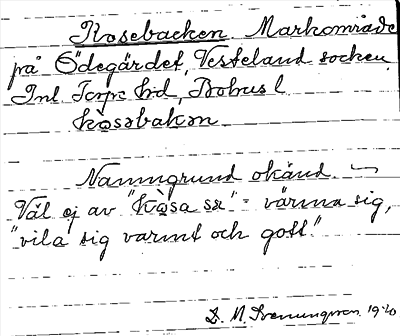 Kosebacken. Markområde
på Ödegärdet, Vesteland socken,
Inl Torpe hd, Bohus l
kòsəbakən
Namngrund okänd. ~
Väl ej av "kòsa sɛ" = värma sig,
"vila sig varmt och gott."
D. M. 1940